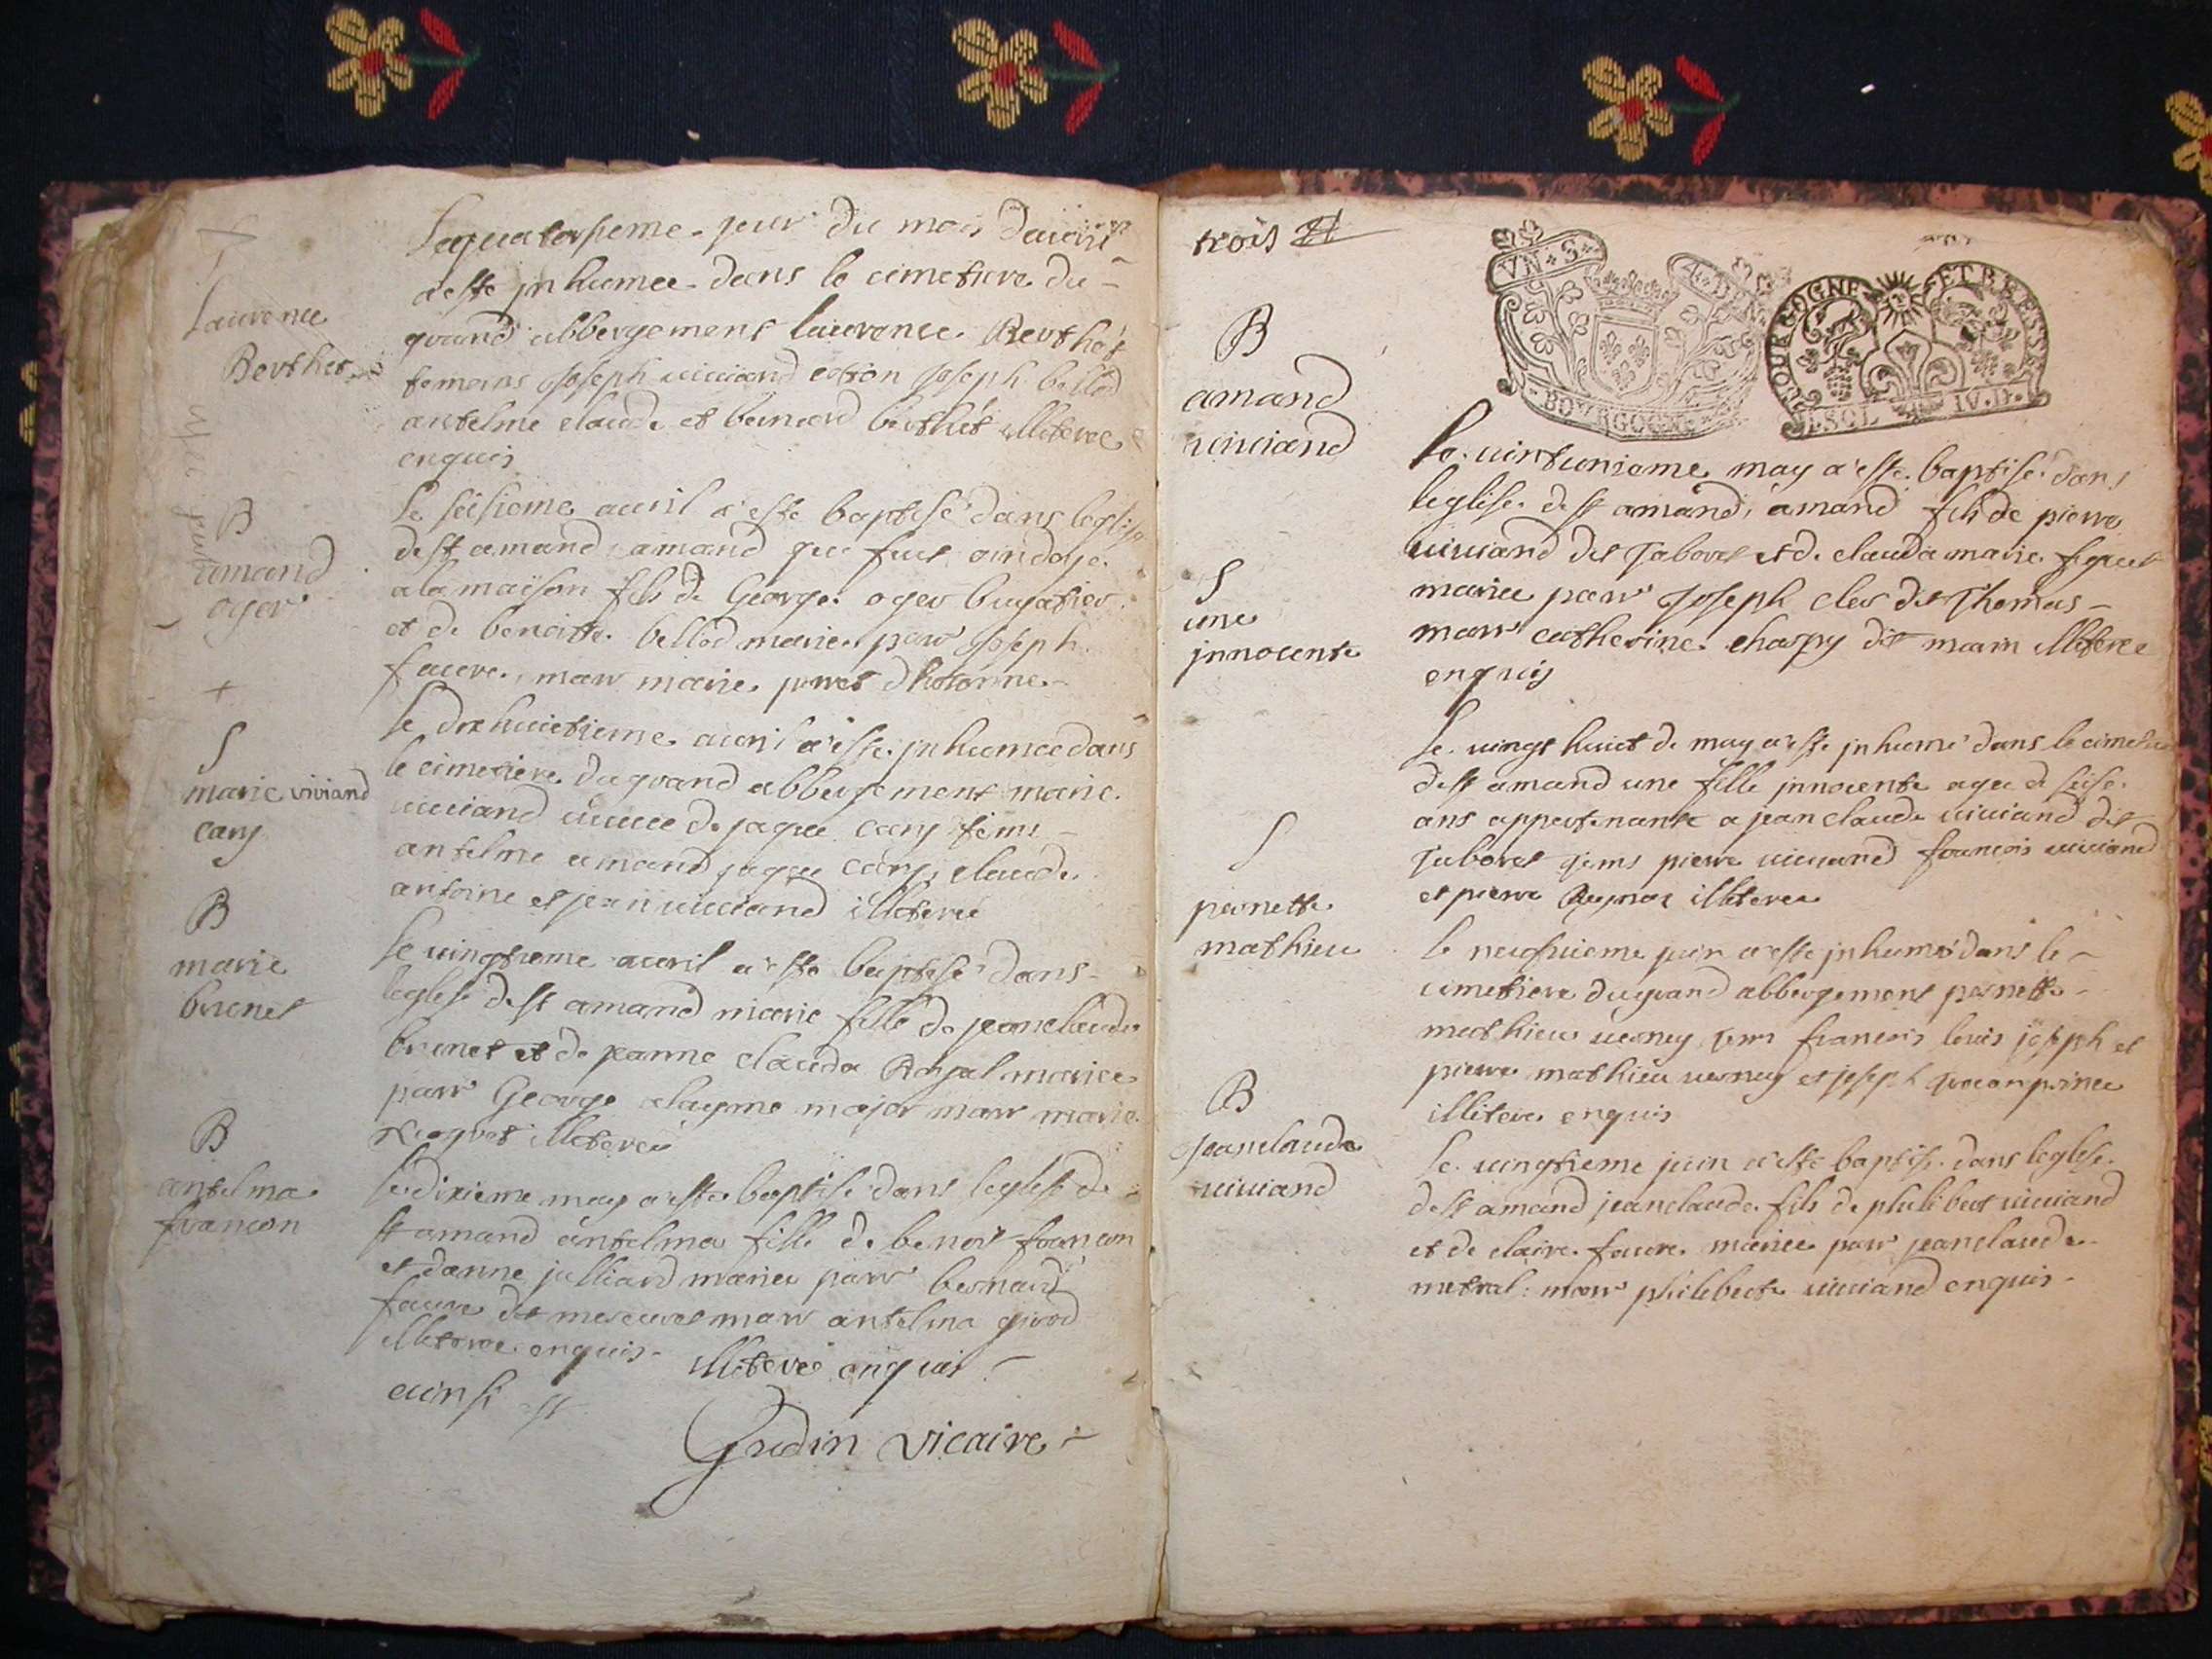 Laurence
Berthet
Le quatorsieme jour du mois davril
a este inhumee dans le cimetiere du
grand abbergement laurence Berthet
temoins Joseph viviand Joseph bellod
antelme claude et bernard berthet illiteree
enquis
B
amand
oger
le seisieme avril a este baptisé dans leglise
de st amand amand que fut ondoye
a la maison fils de George oger
et de benoitte bellod mariee parr Joseph
favre, marr marie dhotonne
S
marie viviand
cary
le dixhuictieme avril a este inhumee dans
le cimetiere du grand abbergement marie
viviand veuve de jaque cary tems
antelme amand jaque cary claude
antoine et jean viviand illiteree
B
marie
brunet
le vingtieme avril a este baptisé dans
leglise de st amand marie fille de jeanclaude
brunet et de jeanne clauda Royal mariee
parr George alayme major marr marie
illiteree
B
antelma
francon
le dixieme may a este baptisé dans leglise de
st amand antelma fille de benoit francon
et danne julliard mariee parr bernard
favre dit marr antelma girod
illiteree enquis
illiteree enquis
ainsi est
Gudin vicaire
trois
VN · S ·
4 · D
BOVRGOGNE
BOURGOGNE ET BRESSE
IV · D ·
B
amand
viviand
le vintunieme may a este baptisé dans
leglise de st amand, amand fils de pierre
viviand dit Taboret et de clauda marie
mariee parr Joseph cler dit Thomas
marr catherine charpy dit marin illiteree
enquis
S
une
innocente
le vingt huict de may a este inhumé dans le cimetiere
de st amand une fille innocente agee de seise
ans appartenante a jean claude viviand dit
Taboret tems pierre viviand francois viviand
et pierre illiteree
S
pernette
mathieu
le neufvieme juin a este inhumé dans le
cimetiere du grand abbergement pernette
mathieu verney tems francois louis joseph et
pierre mathieu verney et joseph francon prince
illiteree enquis
B
jeanclaude
viviand
le vingtieme juin a este baptisé dans leglise
de st amand jeanclaude fils de philibert viviand
et de claire favre mariee parr jeanclaude
metral: marr philiberte viviand enquis